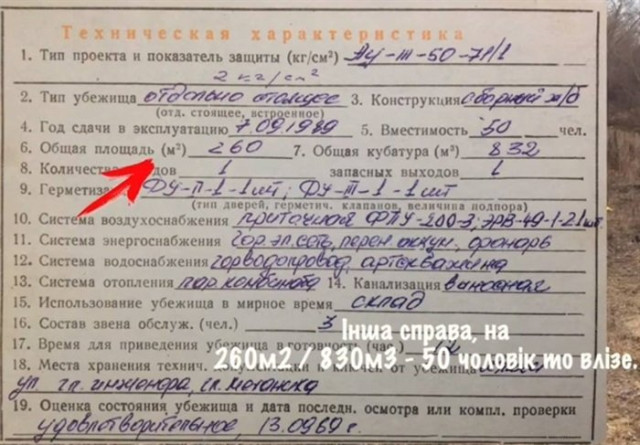 Техническая характеристика
1. Тип проекта и показатель защиты (кг/см²) АУ-III-50-71/1
2 кг/см²
2. Тип убежища отдельно стоящее 3. Конструкция сборный ж/б
(отд. стоящее, встроенное)
4. Год сдачи в эксплуатацию 7.09.1989 5. Вместимость 50 чел.
6. Общая площадь (м²) 260 7. Общая кубатура (м³) 832
8. Количество 1 запасных выходов 1
9. ДУ-П-1-1шт; ДУ-III-1-1шт
(тип дверей, герметич. клапанов, величина подпора)
10. Система воздухоснабжения приточная ФПУ-200-3; ЭРВ-49-1-2шт.
11. Система энергоснабжения гор. эл. сеть, перен. аккум. фонарь
12. Система водоснабжения горводопровод, артскважина
13. Система отопления комбината 14. Канализация выносная
15. Использование убежища в мирное время склад
16. Состав звена обслуж. (чел.) 3
Інша справа, на
17. Время для приведения убежища в готовность (час.) 12
260м2 / 830м3 - 50 чоловік то влізе.
18. Места хранения технич. от убежища
гл. инженера, гл. механика
19. Оценка состояния убежища и дата последн. осмотра или компл. проверки
удовлетворительное, 13.09